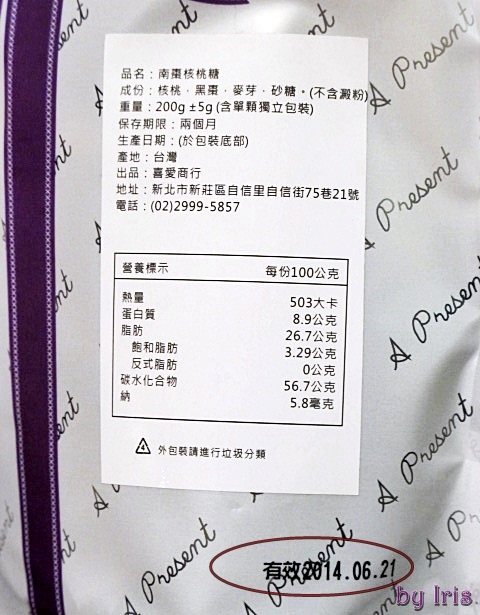 品名：南棗核桃糖
成份：核桃．黑棗．麥芽．砂糖。(不含澱粉)
重量：200g ±5g (含單顆獨立包裝)
保存期限：兩個月
生產日期：(於包裝底部)
產地：台灣
出品：喜愛商行
地址：新北市新莊區自信里自信街75巷21號
電話：(02)2999-5857
營養標示 每份100公克
熱量 503大卡
蛋白質 8.9公克
脂肪 26.7公克
飽和脂肪 3.29公克
反式脂肪 0公克
碳水化合物 56.7公克
納 5.8毫克
外包裝請進行垃圾分類
A Present
A Present
A Present
A Present
有效2014.06.21
by Iris.